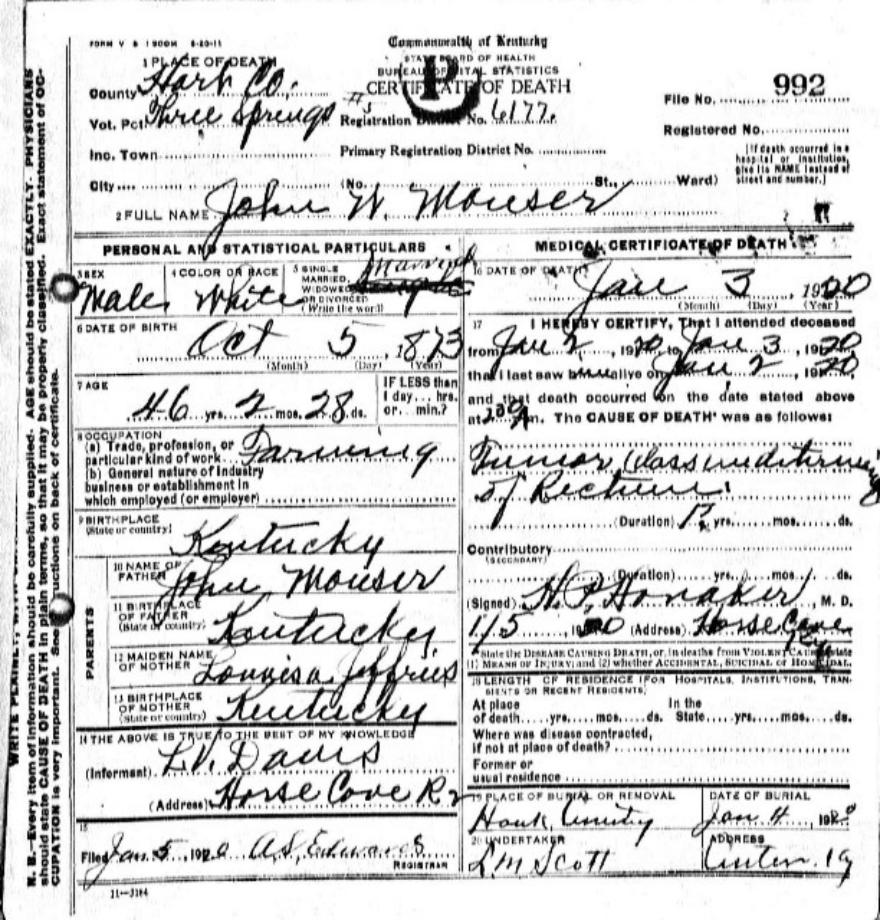 FORM V S 1 500M 8-20-11
Commonwealth of Kentucky
STATE BOARD OF HEALTH
BUREAU OF VITAL STATISTICS
CERTIFICATE OF DEATH
1 PLACE OF DEATH
County Hart Co.
Vot. Pct. Three Springs #5 Registration District No. 6177
File No. 992
Registered No.
Inc. Town Primary Registration District No.
[If death occurred in a hospital or institution, give its NAME instead of street and number.]
City (No. St., Ward)
2 FULL NAME John W. Mouser
PERSONAL AND STATISTICAL PARTICULARS
3 SEX Male
4 COLOR OR RACE White
5 SINGLE MARRIED, WIDOWED OR DIVORCED (Write the word) Married
6 DATE OF BIRTH
Oct 5, 1873
(Month) (Day) (Year)
7 AGE
46 yrs. 2 mos. 28 ds.
IF LESS than 1 day... hrs. or... min.?
8 OCCUPATION
(a) Trade, profession, or particular kind of work Farming
(b) General nature of industry
business or establishment in
which employed (or employer)
9 BIRTHPLACE
(State or country) Kentucky
PARENTS
10 NAME OF FATHER John Mouser
11 BIRTHPLACE OF FATHER (State or country) Kentucky
12 MAIDEN NAME OF MOTHER Louvisa Jeffries
13 BIRTHPLACE OF MOTHER (State or country) Kentucky
14 THE ABOVE IS TRUE TO THE BEST OF MY KNOWLEDGE
(Informant) L.V. Davis
(Address) Horse Cave R 2
15
Filed Jan 5, 1920 A.S. Edwards
REGISTRAR
11-3184
MEDICAL CERTIFICATE OF DEATH
16 DATE OF DEATH
Jan 3, 1920
(Month) (Day) (Year)
17 I HEREBY CERTIFY, That I attended deceased
from Jan 2, 1920 to Jan 3, 1920
that I last saw him alive on Jan 2 1920
and that death occurred on the date stated above
at m. The CAUSE OF DEATH* was as follows:
Tumor (class
of Rectum
(Duration) yrs. mos. ds.
Contributory
(SECONDARY)
(Duration) yrs. mos. ds.
(Signed) H.P. Honaker, M. D.
1/5 1920 (Address) Horse Cave
*State the DISEASE CAUSING DEATH, or, in deaths from VIOLENT CAUSES, state
(1) MEANS OF INJURY; and (2) whether ACCIDENTAL, SUICIDAL or HOMICIDAL.
18 LENGTH OF RESIDENCE (FOR HOSPITALS, INSTITUTIONS, TRANSIENTS OR RECENT RESIDENTS)
At place of death yrs. mos. ds. In the State yrs. mos. ds.
Where was disease contracted,
if not at place of death?
Former or
usual residence
19 PLACE OF BURIAL OR REMOVAL
DATE OF BURIAL
Jan 4 1920
20 UNDERTAKER
L.M Scott
ADDRESS
Center Ky
N. B.—Every item of information should be carefully supplied. AGE should be stated EXACTLY. PHYSICIANS
should state CAUSE OF DEATH in plain terms, so that it may be properly classified. Exact statement of OC-
CUPATION is very important. See instructions on back of certificate.